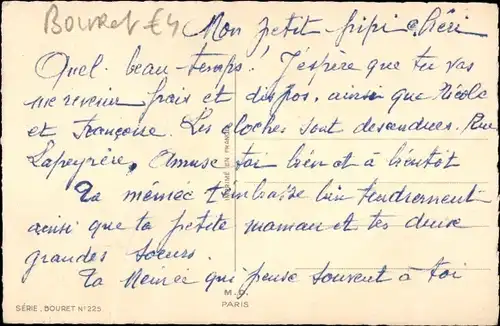 BOURET E4
Mon petit pipi chéri
Quel beau temps! J'espère que tu vas
me revenir frais et dispos, ainsi que Nicole
et Françoise. Les cloches sont descendues Rue
Lapeyrère. Amuse toi bien et à bientôt
Ta mémée t'embrasse bien tendrement
ainsi que ta petite maman et tes deux
grandes soeurs.
Ta Mémée qui pense souvent à toi
IMPRIMÉ EN FRANCE
M. D.
PARIS
SÉRIE. BOURET N° 225